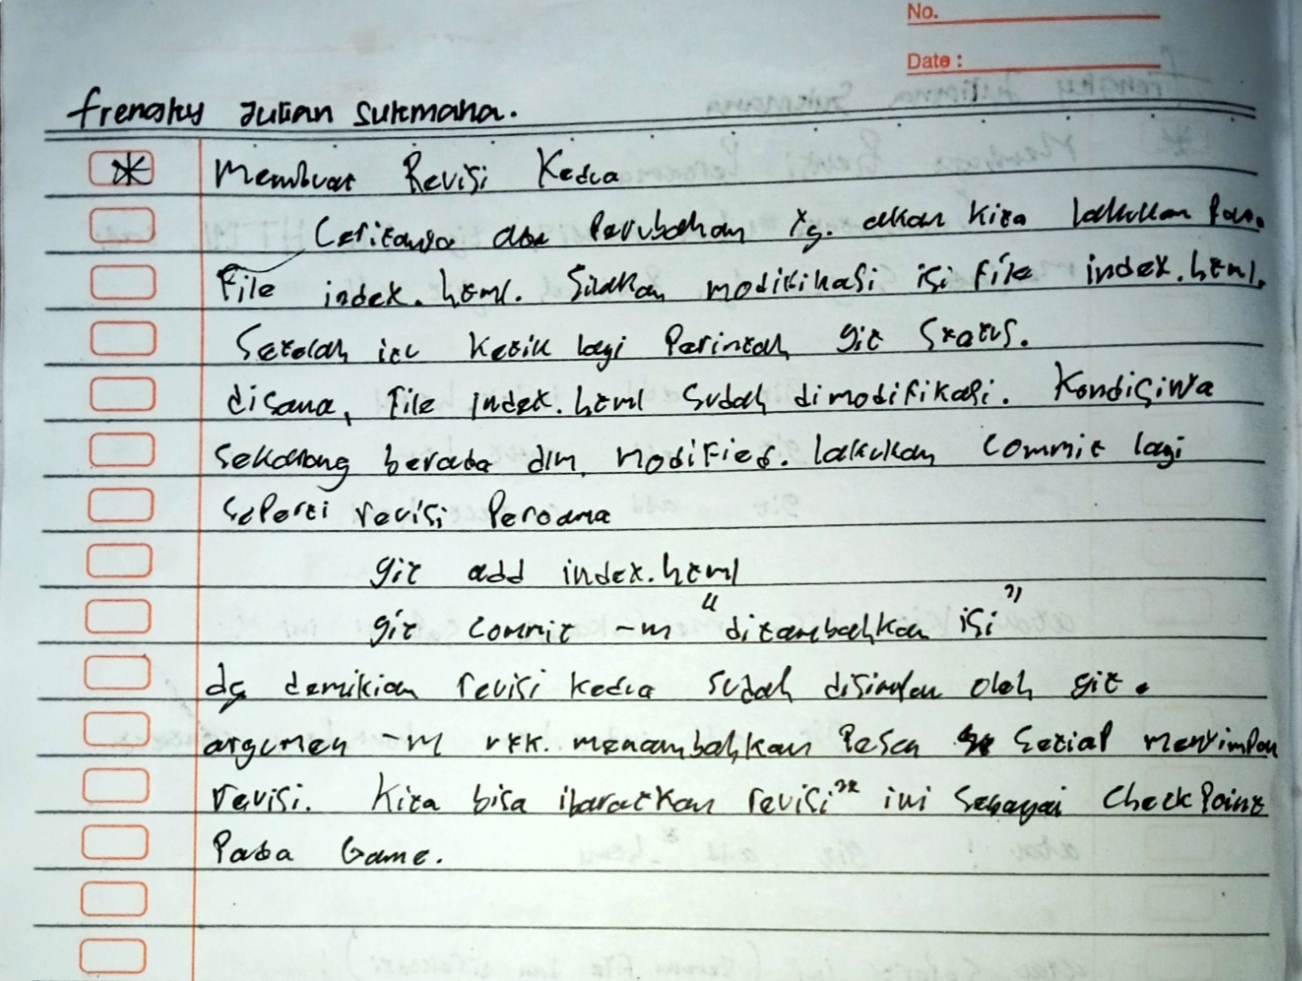 No.
Date :
Frengky Julian Sukmana.
* Membuat Revisi Kedua
Ceritanya ada Perubahan Yg. akan kita lakukan Pada
File index.html. Silahkan modifikasi isi file index.html.
Setelah itu ketik lagi Perintah git Status.
disana, file index.html sudah dimodifikasi. Kondisinya
sekarang berada dlm modified. lakukan commit lagi
seperti revisi Pertama
git add index.html
git commit -m "ditambahkan isi"
dg demikian revisi kedua sudah disimpan oleh git.
argumen -m utk. menambahkan Pesan setiap menyimpan
revisi. Kita bisa ibaratkan revisi" ini sebagai CheckPoint
Pada Game.